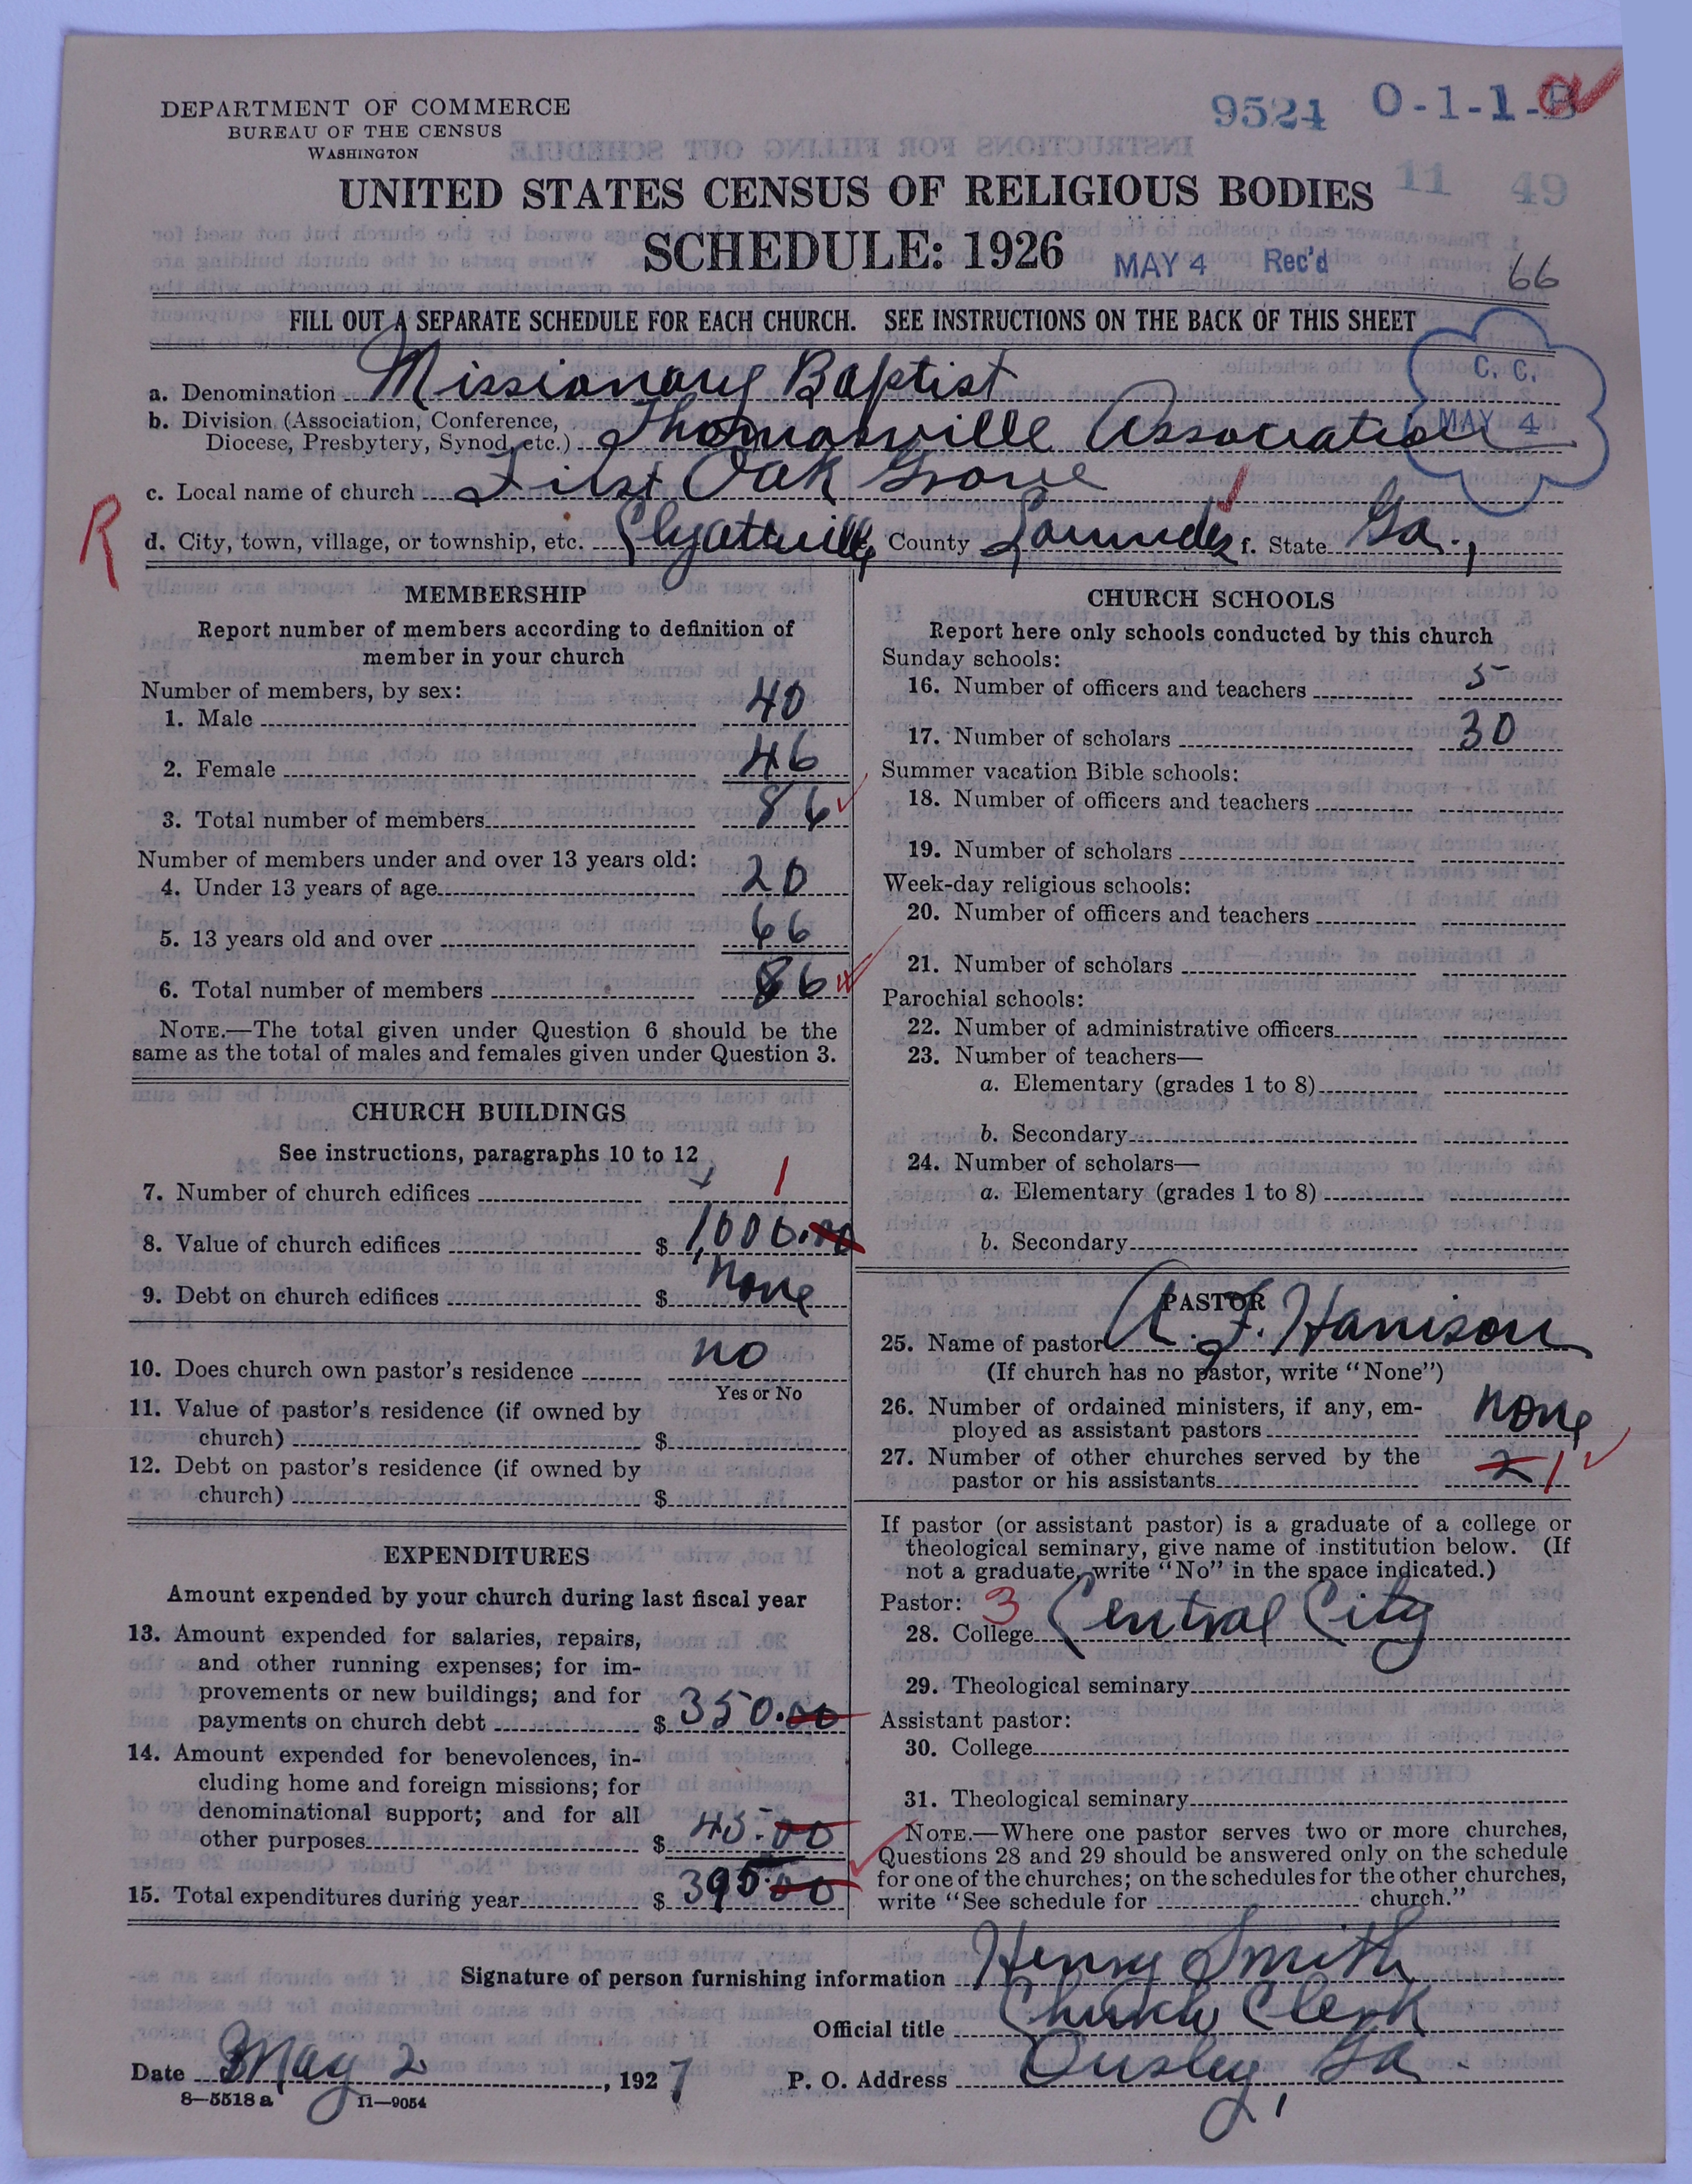 DEPARTMENT OF COMMERCE
BUREAU OF THE CENSUS
WASHINGTON
9524 0-1-1-B
11 49
UNITED STATES CENSUS OF RELIGIOUS BODIES
SCHEDULE: 1926
MAY 4 Rec'd
66
FILL OUT A SEPARATE SCHEDULE FOR EACH CHURCH. SEE INSTRUCTIONS ON THE BACK OF THIS SHEET
C. C.
MAY 4
a. Denomination Missionary Baptist
b. Division (Association, Conference,
Diocese, Presbytery, Synod, etc.) Thomasville Association
c. Local name of church First Oak Grove
R
d. City, town, village, or township, etc. Clyattville County Lowndes f. State Ga.,
MEMBERSHIP
Report number of members according to definition of
member in your church
Number of members, by sex:
1. Male 40
2. Female 46
3. Total number of members 86
Number of members under and over 13 years old:
4. Under 13 years of age 20
5. 13 years old and over 66
6. Total number of members 86
NOTE.—The total given under Question 6 should be the
same as the total of males and females given under Question 3.
CHURCH BUILDINGS
See instructions, paragraphs 10 to 12
7. Number of church edifices 1
8. Value of church edifices $ 1,000.00
9. Debt on church edifices $ None
10. Does church own pastor's residence no
Yes or No
11. Value of pastor's residence (if owned by
church) $
12. Debt on pastor's residence (if owned by
church) $
EXPENDITURES
Amount expended by your church during last fiscal year
13. Amount expended for salaries, repairs,
and other running expenses; for im-
provements or new buildings; and for
payments on church debt $ 350.00
14. Amount expended for benevolences, in-
cluding home and foreign missions; for
denominational support; and for all
other purposes $ 45.00
15. Total expenditures during year $ 395.00
CHURCH SCHOOLS
Report here only schools conducted by this church
Sunday schools:
16. Number of officers and teachers 5
17. Number of scholars 30
Summer vacation Bible schools:
18. Number of officers and teachers
19. Number of scholars
Week-day religious schools:
20. Number of officers and teachers
21. Number of scholars
Parochial schools:
22. Number of administrative officers
23. Number of teachers—
a. Elementary (grades 1 to 8)
b. Secondary
24. Number of scholars—
a. Elementary (grades 1 to 8)
b. Secondary
PASTOR
25. Name of pastor A. F. Harrison
(If church has no pastor, write "None")
26. Number of ordained ministers, if any, em-
ployed as assistant pastors None
27. Number of other churches served by the
pastor or his assistants 2 1
If pastor (or assistant pastor) is a graduate of a college or
theological seminary, give name of institution below. (If
not a graduate, write "No" in the space indicated.)
Pastor: 3
28. College Central City
29. Theological seminary
Assistant pastor:
30. College
31. Theological seminary
NOTE.—Where one pastor serves two or more churches,
Questions 28 and 29 should be answered only on the schedule
for one of the churches; on the schedules for the other churches,
write "See schedule for church."
Signature of person furnishing information Henry Smith
Official title Church Clerk
Date May 2, 1927 P. O. Address Ousley, Ga.
8—5518 a 11—9054